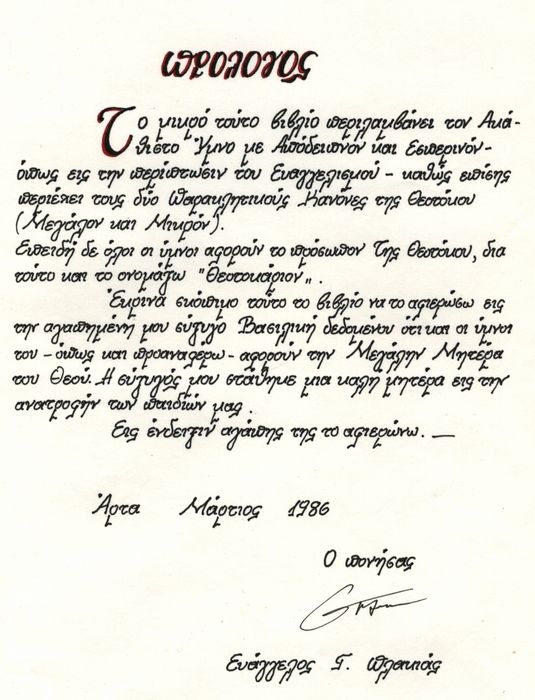 Πρόλογος
Το μικρό τούτο βιβλίο περιλαμβάνει τον Ακά-
θιστο Ύμνο με Απόδειπνον και Εσπερινόν -
όπως εις την περίπτωσιν του Ευαγγελισμού - καθώς επίσης
περιέχει τους δύο Παρακλητικούς Κανόνες της Θεοτόκου
(Μεγάλον και Μικρόν).
Επειδή δε όλοι οι ύμνοι αφορούν το πρόσωπον Της Θεοτόκου, δια
τούτο και το ονομάζω "Θεοτοκάριον„.
Έκρινα σκόπιμο τούτο το βιβλίο να το αφιερώσω εις
την αγαπημένη μου σύζυγο Βασιλική δεδομένου ότι και οι ύμνοι
του - όπως και προαναφέρω - αφορούν την Μεγάλην Μητέρα
του Θεού. Η σύζυγός μου στάθηκε μια καλή μητέρα εις την
ανατροφήν των παιδιών μας.
Εις ένδειξιν αγάπης της το αφιερώνω. —
Άρτα Μάρτιος 1986
Ο πονήσας
Ευάγγελος Γ. Πλακιάς